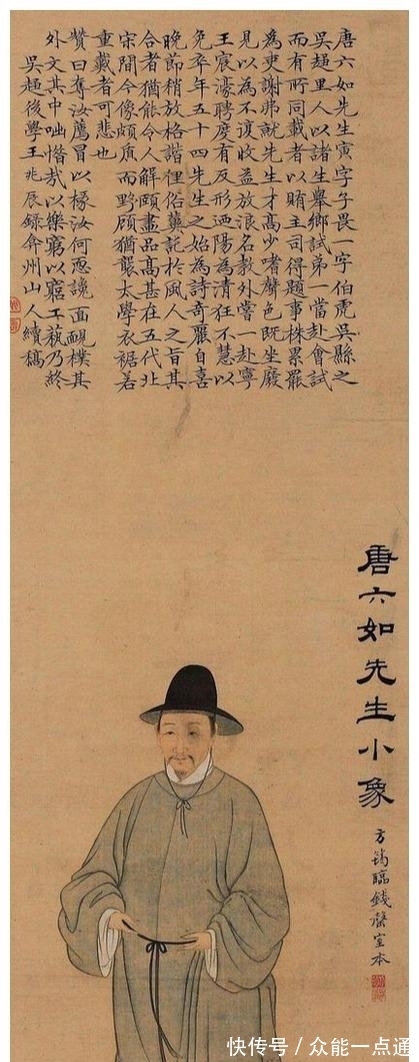 唐六如先生寅字子畏一字伯虎吳縣之
吳趨里人以諸生舉鄉試第一當赴會試
而有所同載者以賄主司得題事株累罷
為吏謝弗就先生才高少嗜聲色既坐廢
見以為不復收益放浪名教外嘗一赴寧
王宸濠聘度有反形迺陽為清狂不慧以
免卒年五十四先生之始為詩奇麗自喜
晚節稍放格諧俚俗蘄託於風人之旨其
合者猶能令人解頤畫品高甚在五代北
宋間今像頗魚而野顧猶襲太學衣裾若
重載者可悲也
贊曰奪汝薦冒以椽汝何恧讒面靦樸其
外文其中咄憯哉以樂窮以窮工藝乃終
吳趨後學王兆辰錄弇州山人續稿
唐六如先生小象
方筠臨錢罄室本
快传号/众能一点通